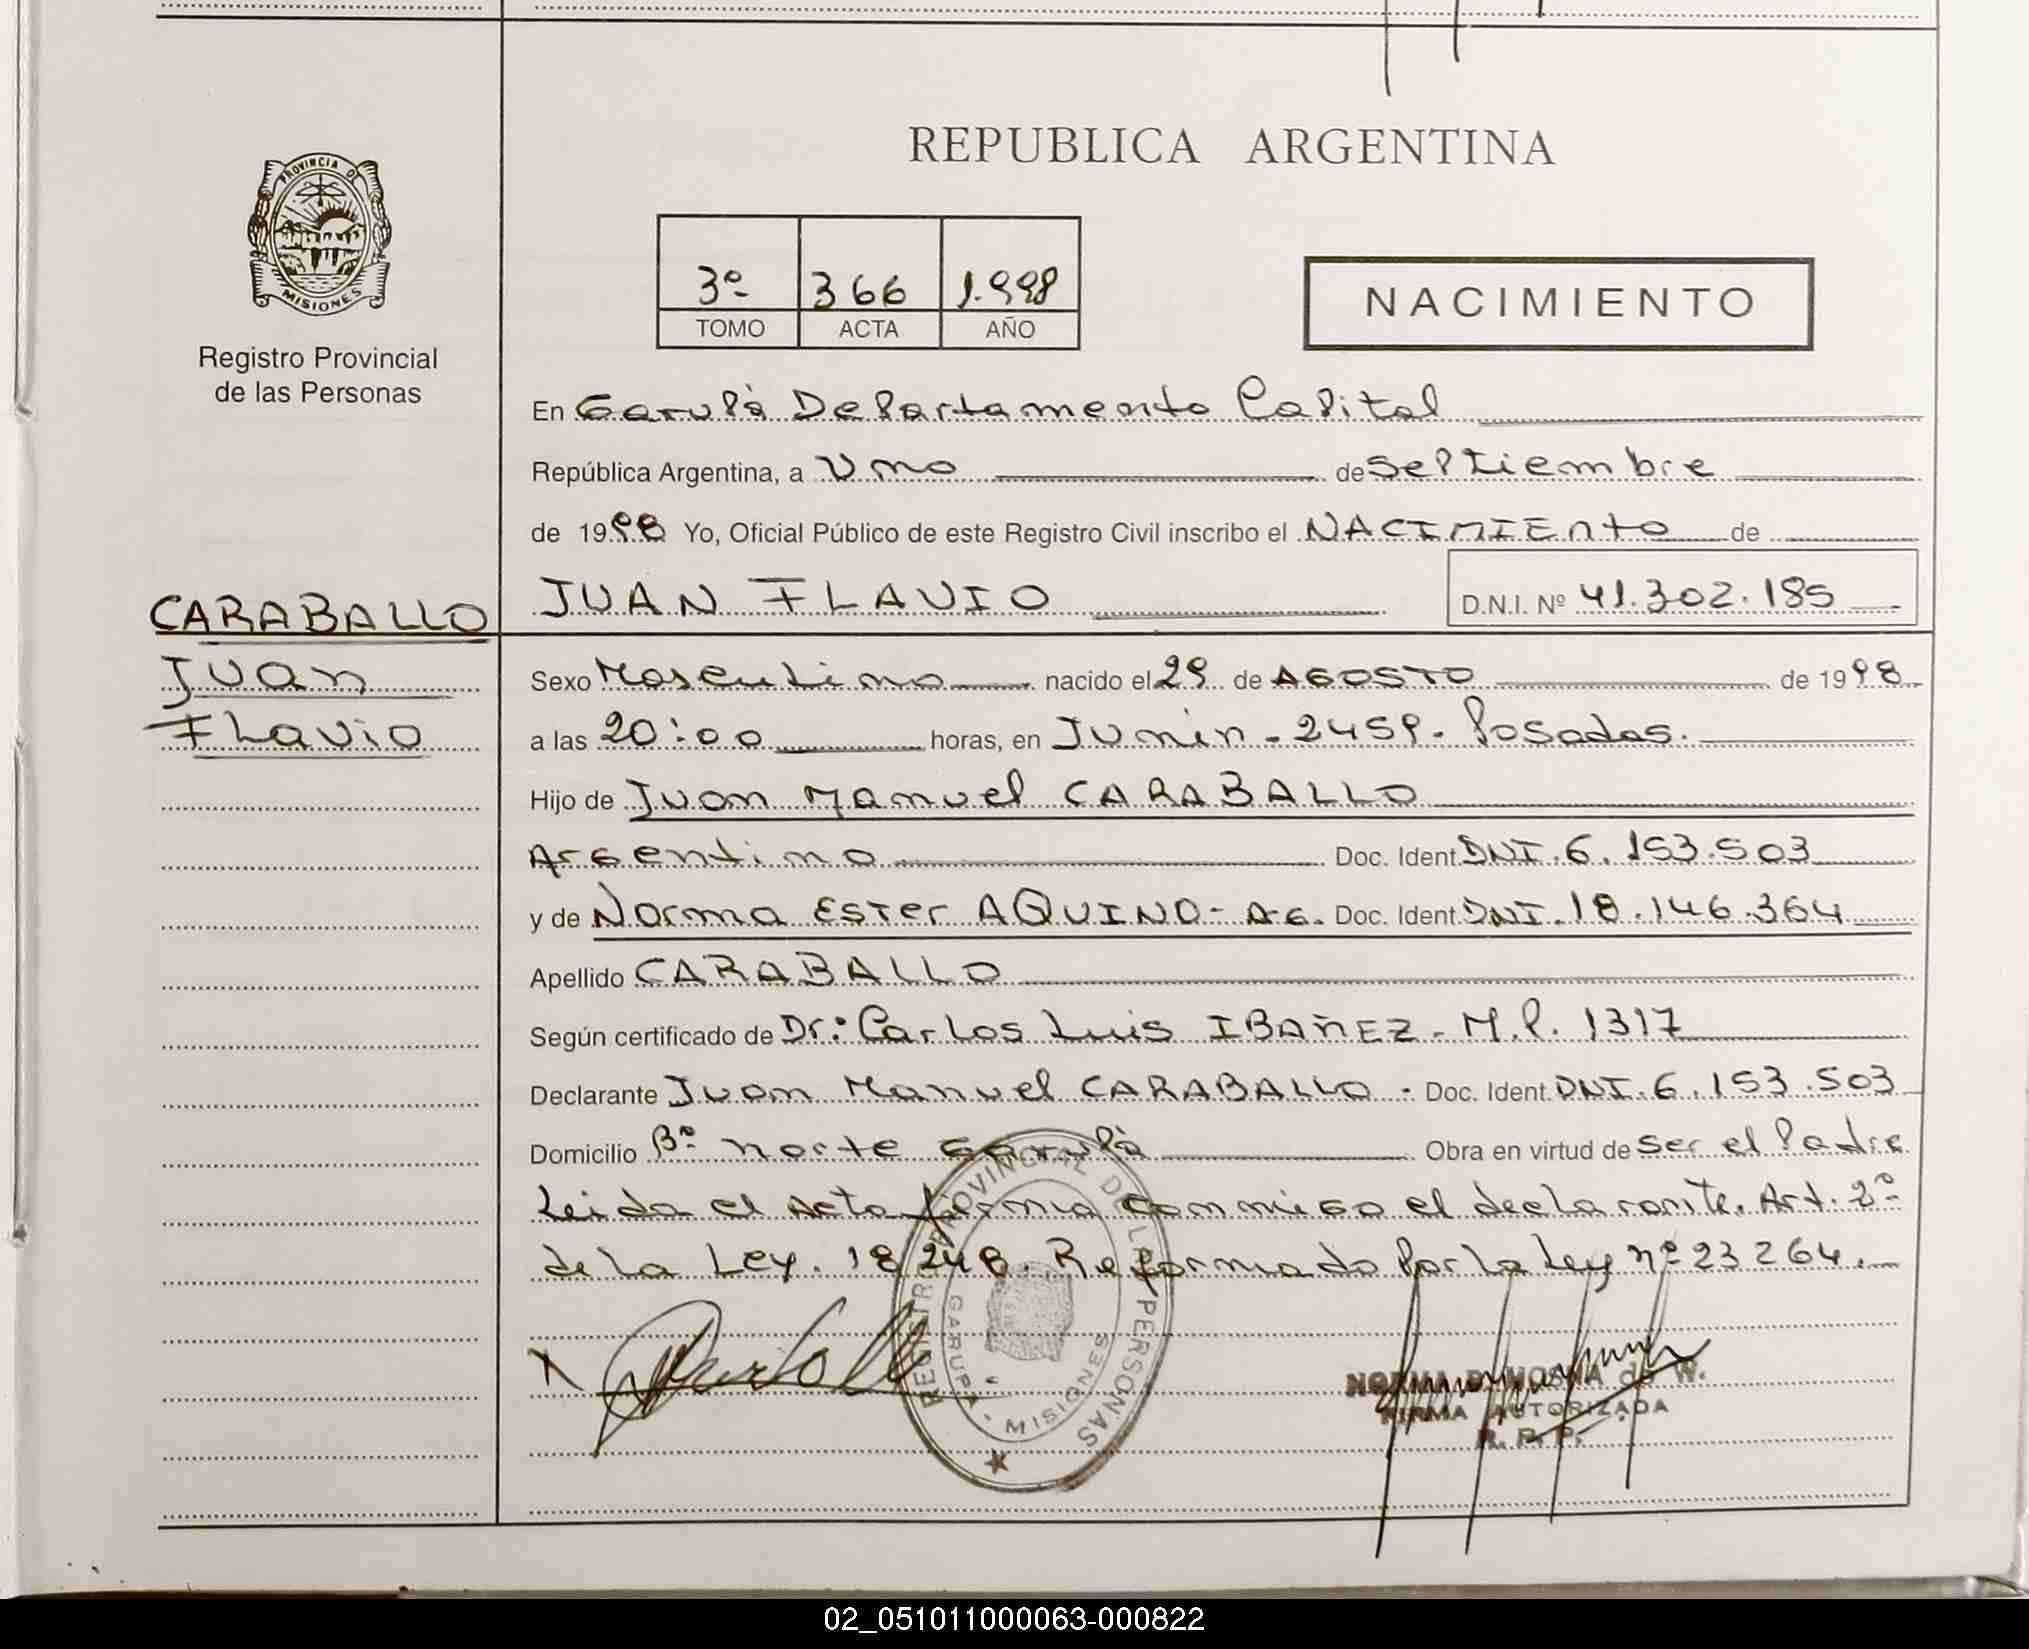 REPUBLICA ARGENTINA
PROVINCIA DE
MISIONES
Registro Provincial
de las Personas
3º 366 1.998
TOMO ACTA AÑO
NACIMIENTO
En Garupà Departamento Capital
República Argentina, a Uno de Septiembre
de 1998 Yo, Oficial Público de este Registro Civil inscribo el NACIMIENTO de
JUAN FLAVIO D.N.I. Nº 41.302.185
CARABALLO
Juan
Flavio
Sexo Masculino nacido el 29 de AGOSTO de 1998
a las 20:00 horas, en Junin - 2459. Posadas.
Hijo de Juan Manuel CARABALLO
Argentino Doc. Ident. DNI. 6.153.503
y de Norma Ester AQUINO - AG. Doc. Ident. DNI. 18.146.364
Apellido CARABALLO
Según certificado de Dr: Carlos Luis IBAÑEZ - M.P. 1317
Declarante Juan Manuel CARABALLO - Doc. Ident. DNI. 6.153.503
Domicilio Bº Norte Garupà Obra en virtud de ser el Padre
Leida el Acta firma conmigo el declarante. Art. 2º
de la Ley. 18248. Reformado por la Ley nº 23264.
REGISTRO PROVINCIAL DE LAS PERSONAS
GARUPA - MISIONES
NORMA de W.
FIRMA AUTORIZADA
R. P. P.
02_051011000063-000822